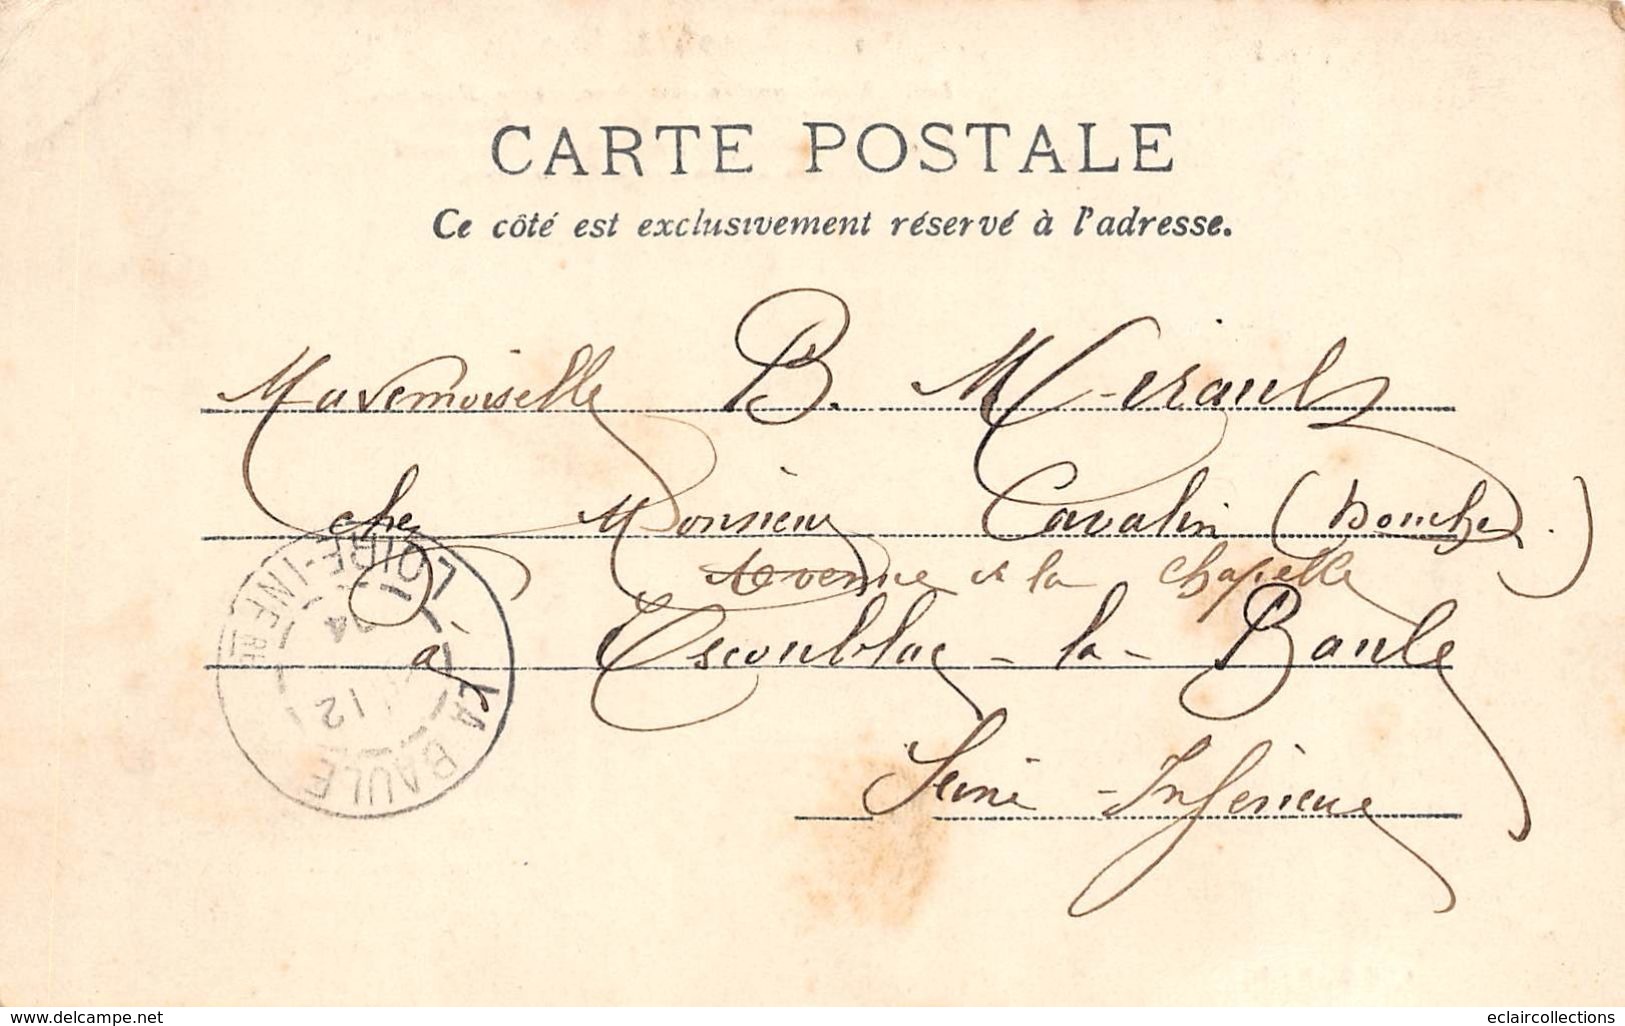 CARTE POSTALE
Ce côté est exclusivement réservé à l'adresse.
Mademoiselle B. Mirault
chez Monsieur Cavalin (Boucher.)
Avenue de la Chapelle
à Escoublac-la-Baule
Seine-Inférieure
LA BAULE
LOIRE-INFRE
12
04
www.delcampe.net
eclaircollections